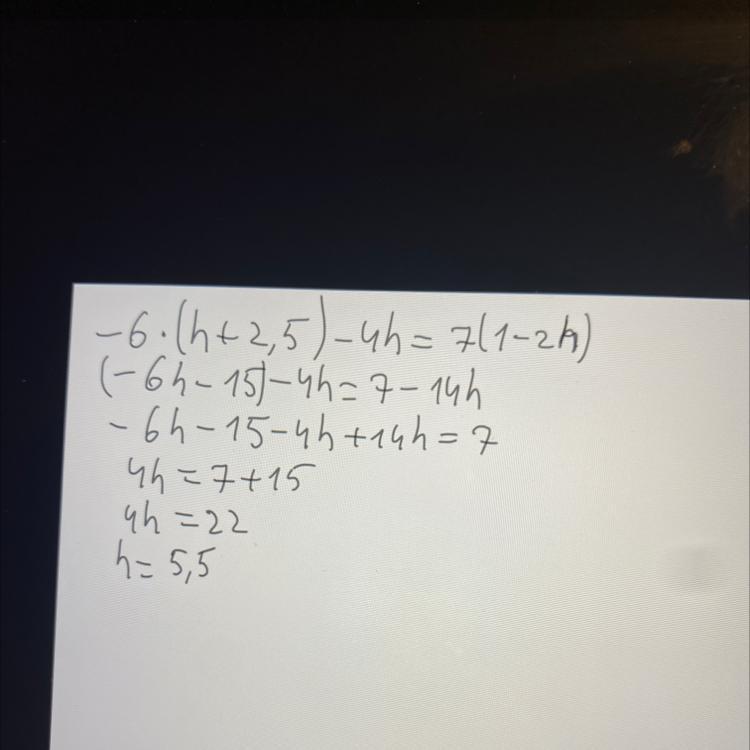 -6·(h+2,5)-4h=7(1-2h)
(-6h-15)-4h=7-14h
-6h-15-4h+14h=7
4h=7+15
4h=22
h=5,5